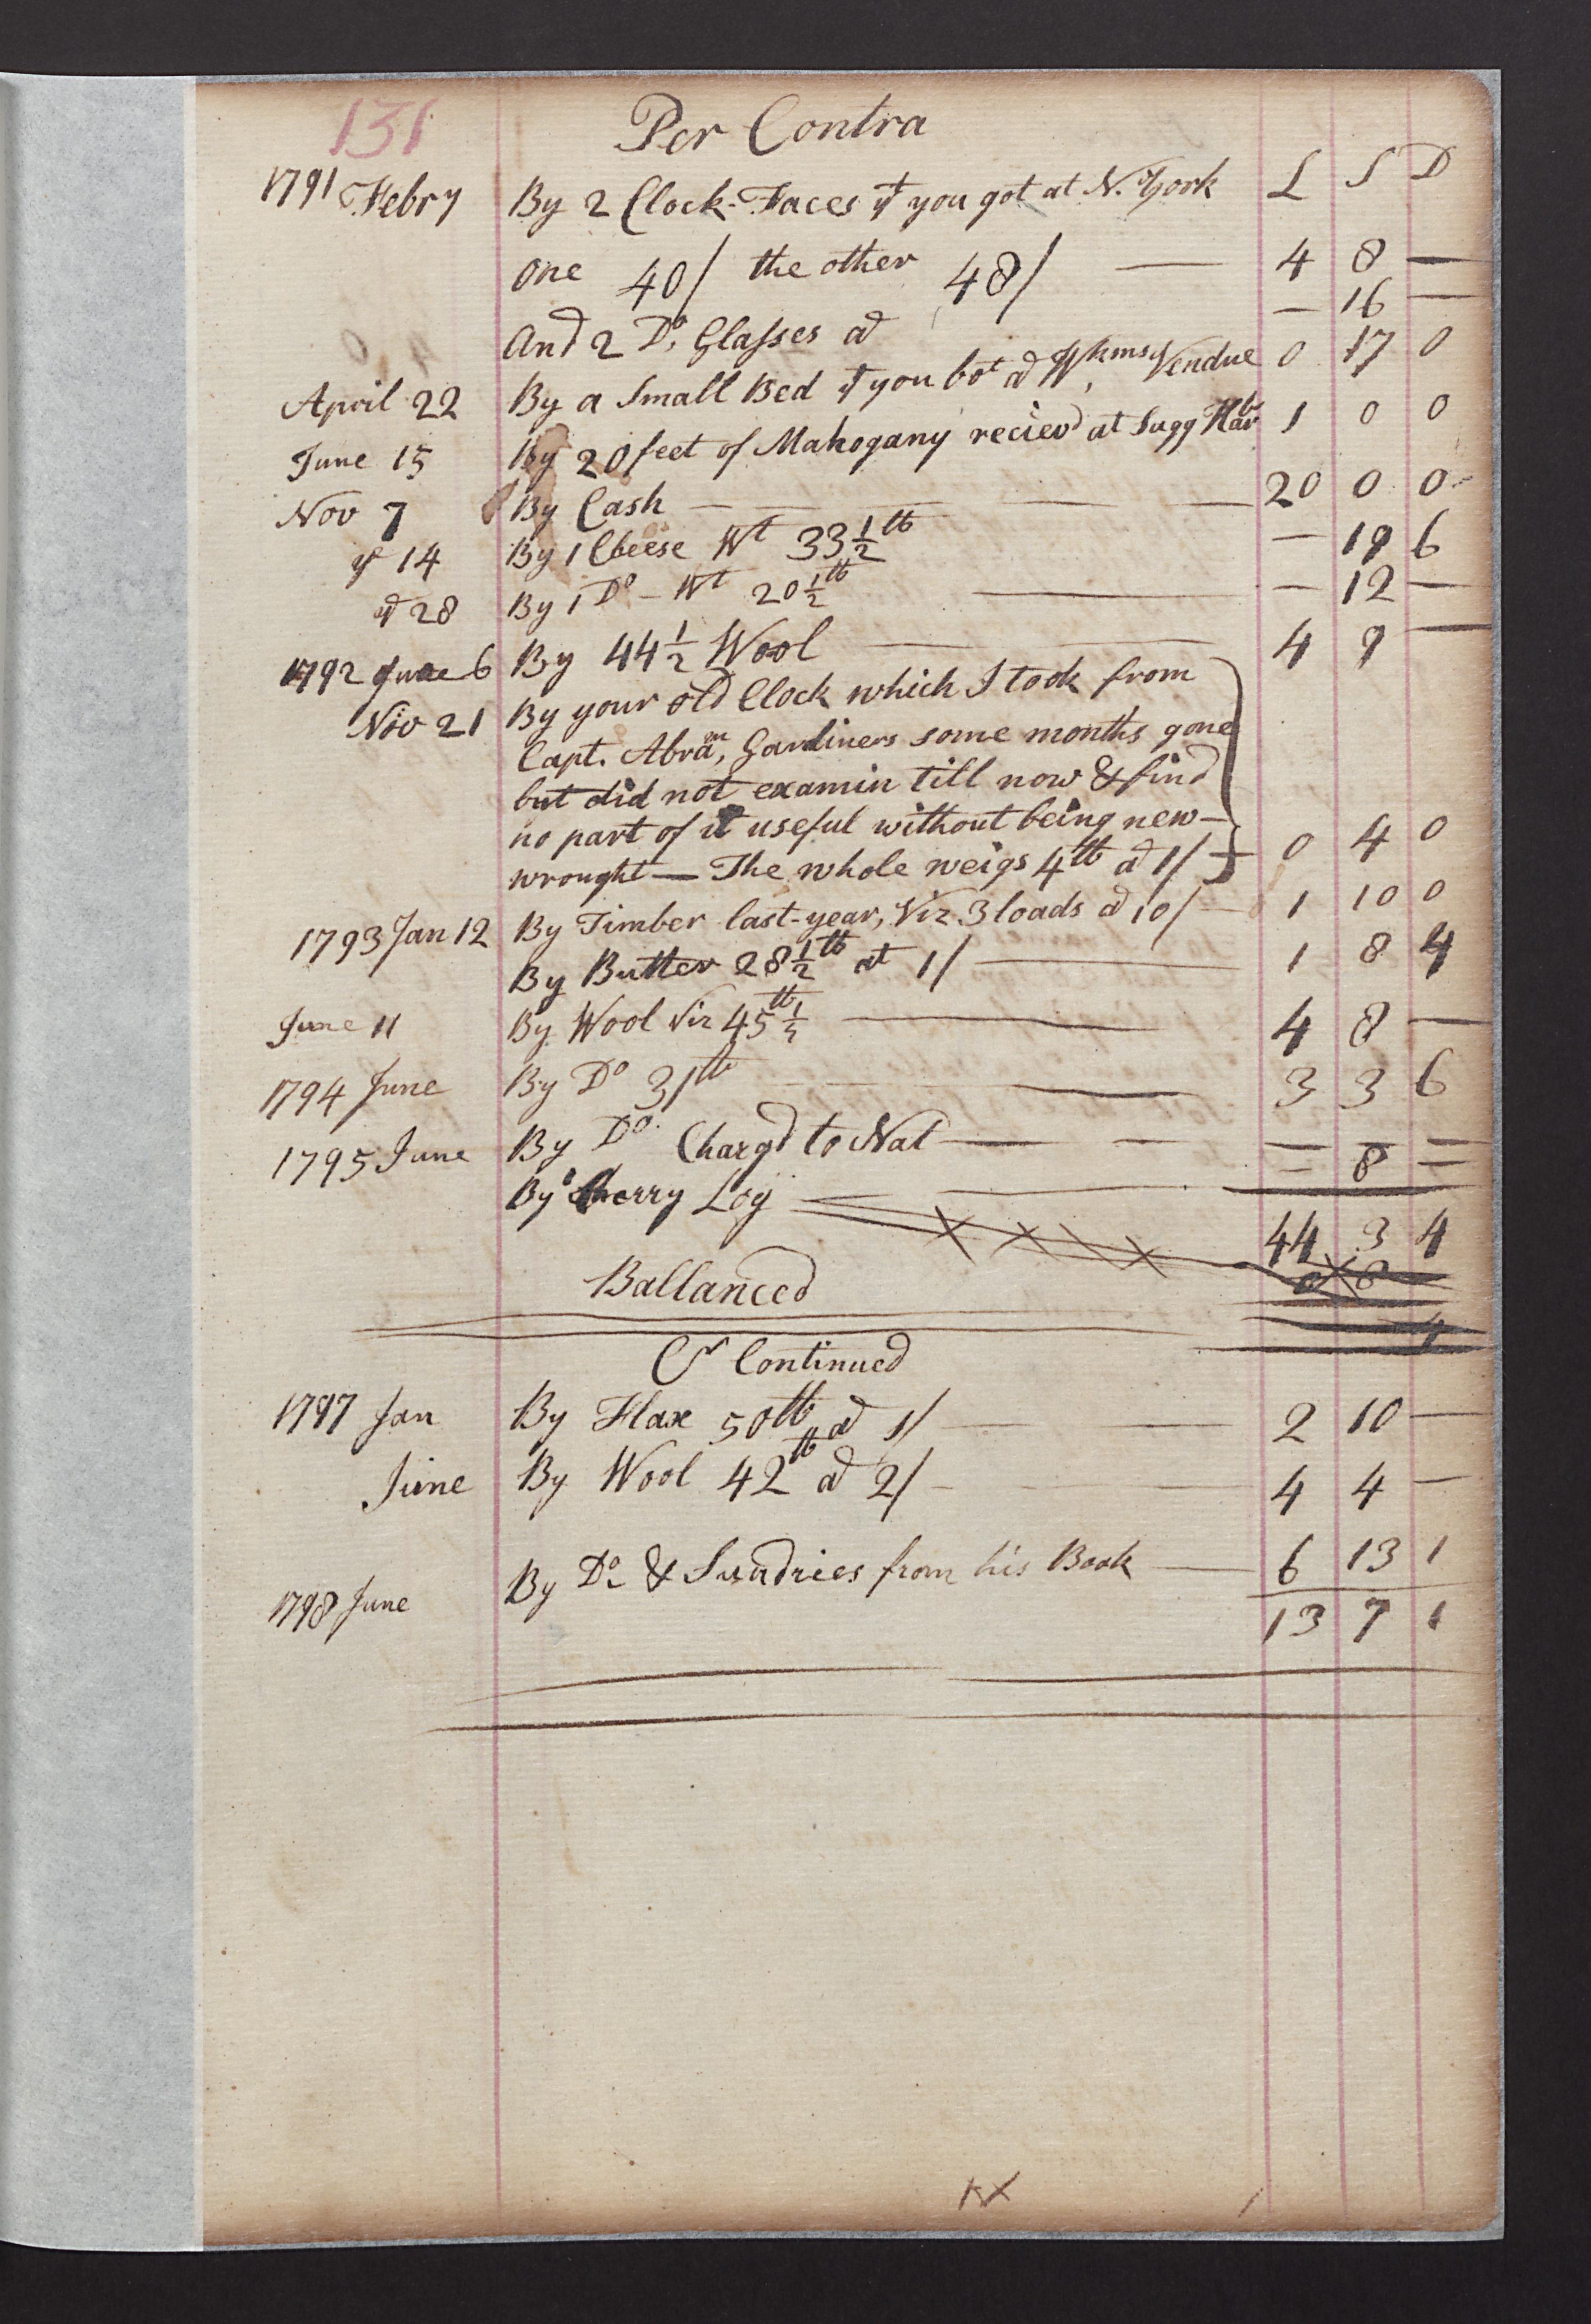 131 Per Contra
1791 Febry By 2 Clock-Faces yt you got at N. York L S D
one 40/ the other 48/ — 4 8 —
And 2 Do, Glasses at — 16 —
April 22 By a Small Bed yt you bot at Wkms, Vendue 0 17 0
June 15 By 20 feet of Mahogany recievd at Sagg Harbr 1 0 0
Nov 7 By Cash — 20 0 0
ye 14 By 1 Cheese Wt 33 1/2 lb — 19 6
28 By 1 Do - Wt 20 1/2 lb — 12 —
1792 June 6 By 44 1/2 Wool — 4 9 —
Nov 21 By your old Clock which I took from
Capt. Abram, Gardiners some months gone
but did not examin till now & find
no part of it useful without being new-
wrought — The whole weigs 4 lb at 1/ — 0 4 0
1793 Jan 12 By Timber last-year, Viz 3 loads at 10/ — 1 10 0
By Butter 28 1/2 lb at 1/ — 1 8 4
June 11 By Wool Viz 45 lb — 4 8 —
1794 June By Do 31 lb — 3 3 6
1795 June By Do. Chargd to Nat — — — — —
By Cherry Log — 8 —
44 3 4
Ballanced
Cr Continued
1797 Jan By Flax 50 lb at 1/ — 2 10 —
June By Wool 42 lb at 2/ — 4 4 —
1798 June By Do & Sundries from his Book — 6 13 1
13 7 1